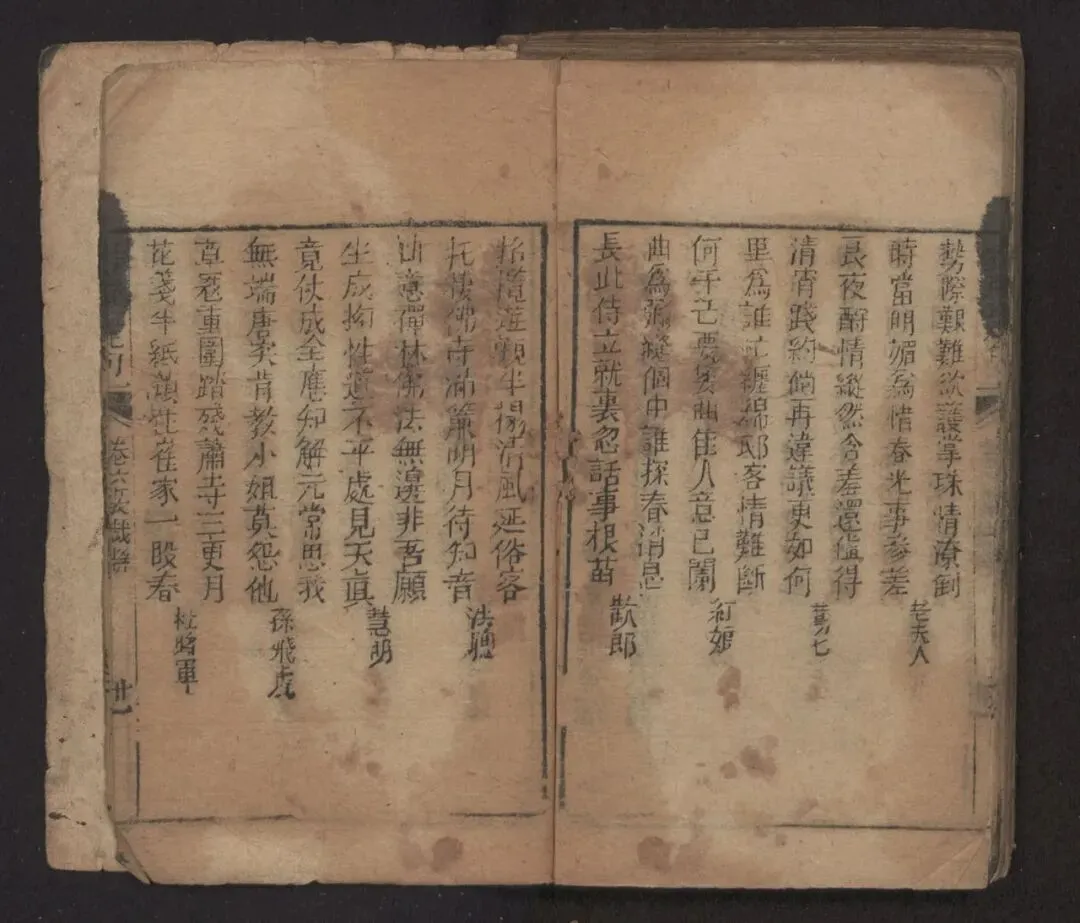 勢際艱難欲護掌珠情潦倒
時當明媚為惜春光事參差
老夫人
長夜酹情縱然含羞還值得
清宵踐約倘再違議更如何
里為誰忙纏綿邸客情難斷
何干己要委曲佳人意已闌
紅娘
曲為弥縫個中誰探春消息
長此侍立就裏忽話事根苗
歡郎
清風延俗客
托棲佛寺滿簾明月待知音
法聰
意禪林佛法無邊非吾願
坐成拘性道不平處見天真
慧明
竟仗成全應知解元常思我
無端唐突肯教小姐莫怨他
孫飛虎
草寇重圍踏殘蕭寺三更月
花箋半紙顛性崔家一段春
杜將軍
卷六
廿一